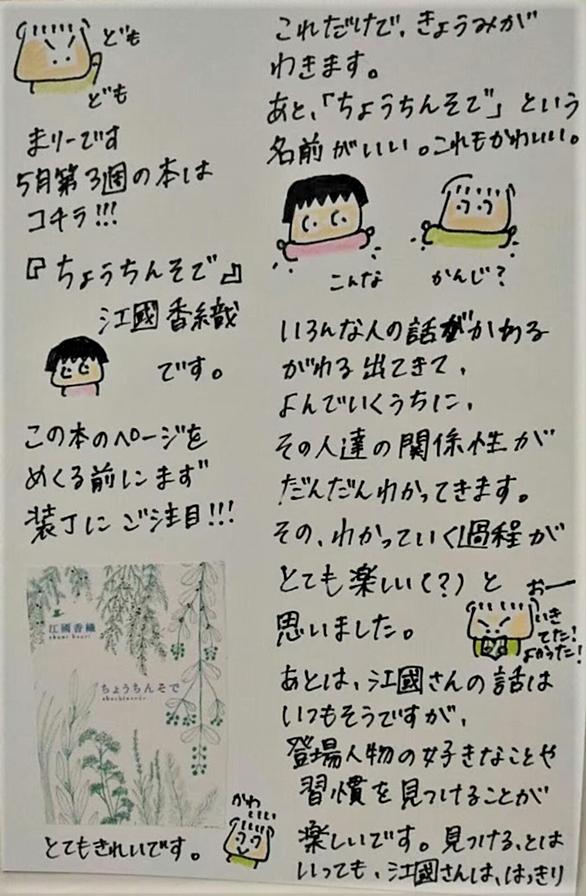 ども
ども
まりーです
5月第3週の本は
コチラ!!!
『ちょうちんそで』
江國香織
です。
この本のページを
めくる前にまず
装丁にご注目!!!
江國香織
ちょうちんそで
とてもきれいです。
かわ
いい
これだけで、きょうみが
わきます。
あと、「ちょうちんそで」という
名前がいい。これもかわいい。
こんな
かんじ?
いろんな人の話がかわる
がわる出てきて、
よんでいくうちに、
その人達の関係性が
だんだんわかってきます。
その、わかっていく過程が
とても楽しい(?)と
思いました。
おー
いき
てた!
よかった!
あとは、江國さんの話は
いつもそうですが、
登場人物の好きなことや
習慣を見つけることが
楽しいです。見つける、とは
いっても、江國さんは、はっきり